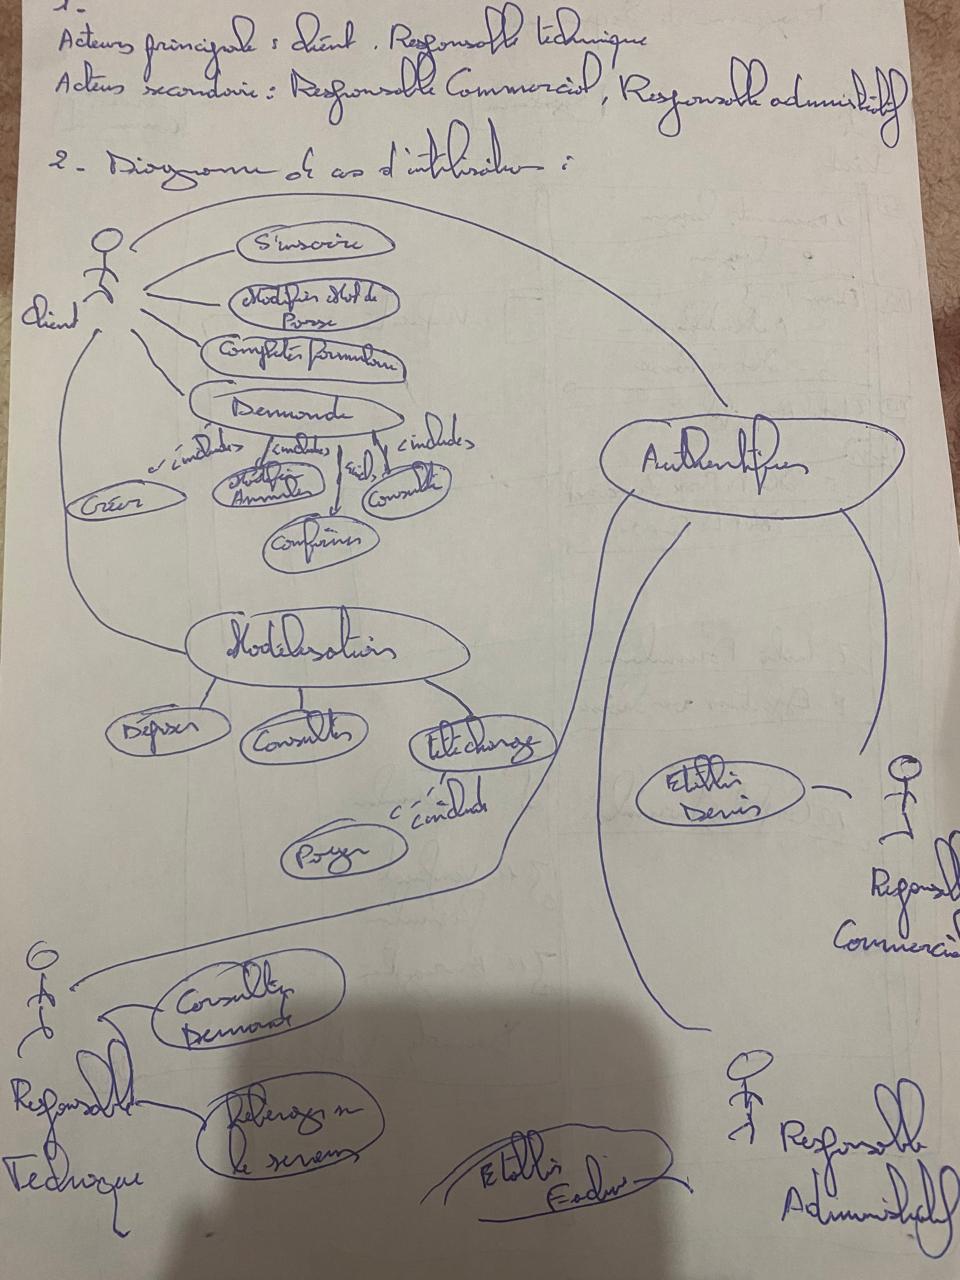 1-
Acteurs principale : client . Responsable technique
Acteurs secondaire : Responsable Commercial, Responsable administratif
2 - Diagramme de cas d'utilisation :
S'inscrire
Modifier Mot de
Passe
Client
Completer formulaire
Demande
include
include
include
Authentifier
Modifier
Annuler
Consulter
Créer
Confirmer
Modélisation
Déposer
Consulter
Télécharge
Etablir
Devis
include
Payer
Responsable
Commercial
Consulter
Demande
Responsable
Technique
le serveur
Etablir
Responsable
Administratif